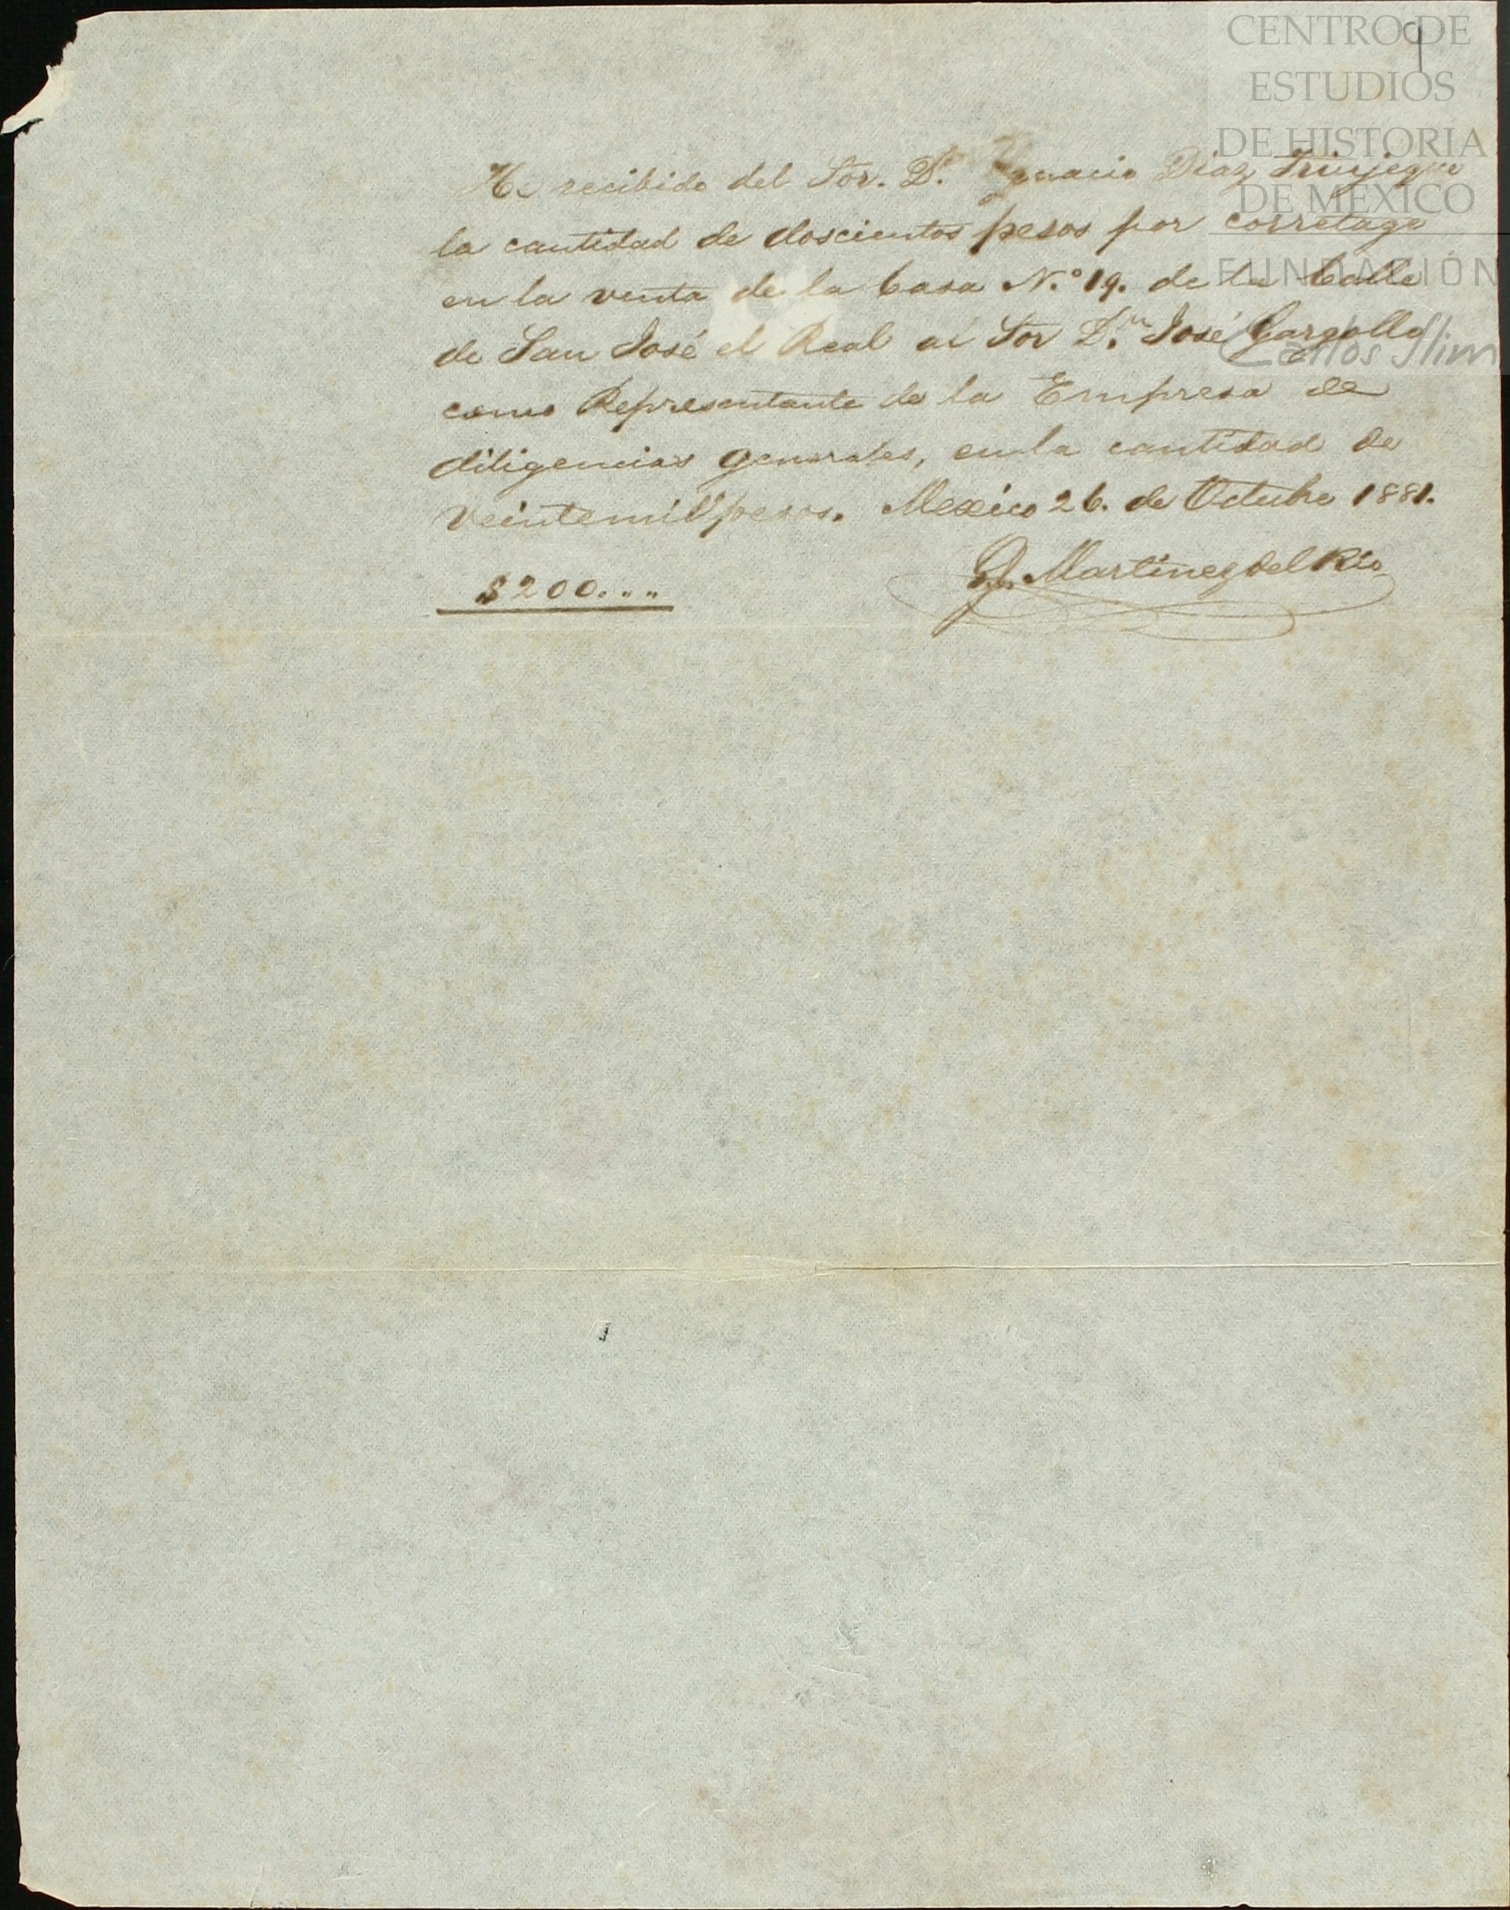 9
CENTRO DE
ESTUDIOS
DE HISTORIA
DE MÉXICO
FUNDACIÓN
Carlos Slim
He recibido del Sor. Dn. Ygnacio Diaz Triujeque
la cantidad de doscientos pesos por corretage
en la venta de la Casa N.º 19. de la Calle
de San José el Real al Sor D.n José Gargollo
como Representante de la Empresa de
diligencias generales, en la cantidad de
veinte mil pesos. Mexico 26. de Octubre 1881.
Martinez del Rio
$200...